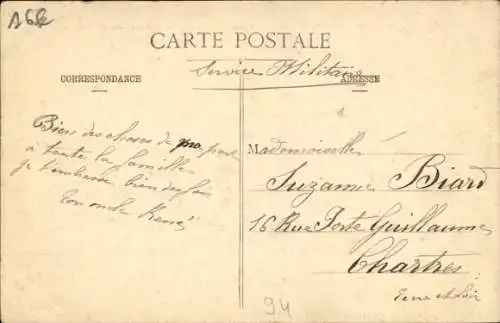 16e
CARTE POSTALE
Service Militaire
CORRESPONDANCE
ADRESSE
Bien des choses de ma part
à toute la famille
je t'embrasse bien des fois
ton oncle René
Mademoiselle
Suzanne Biard
16 Rue Porte Guillaume
Chartres
Eure et Loir
94